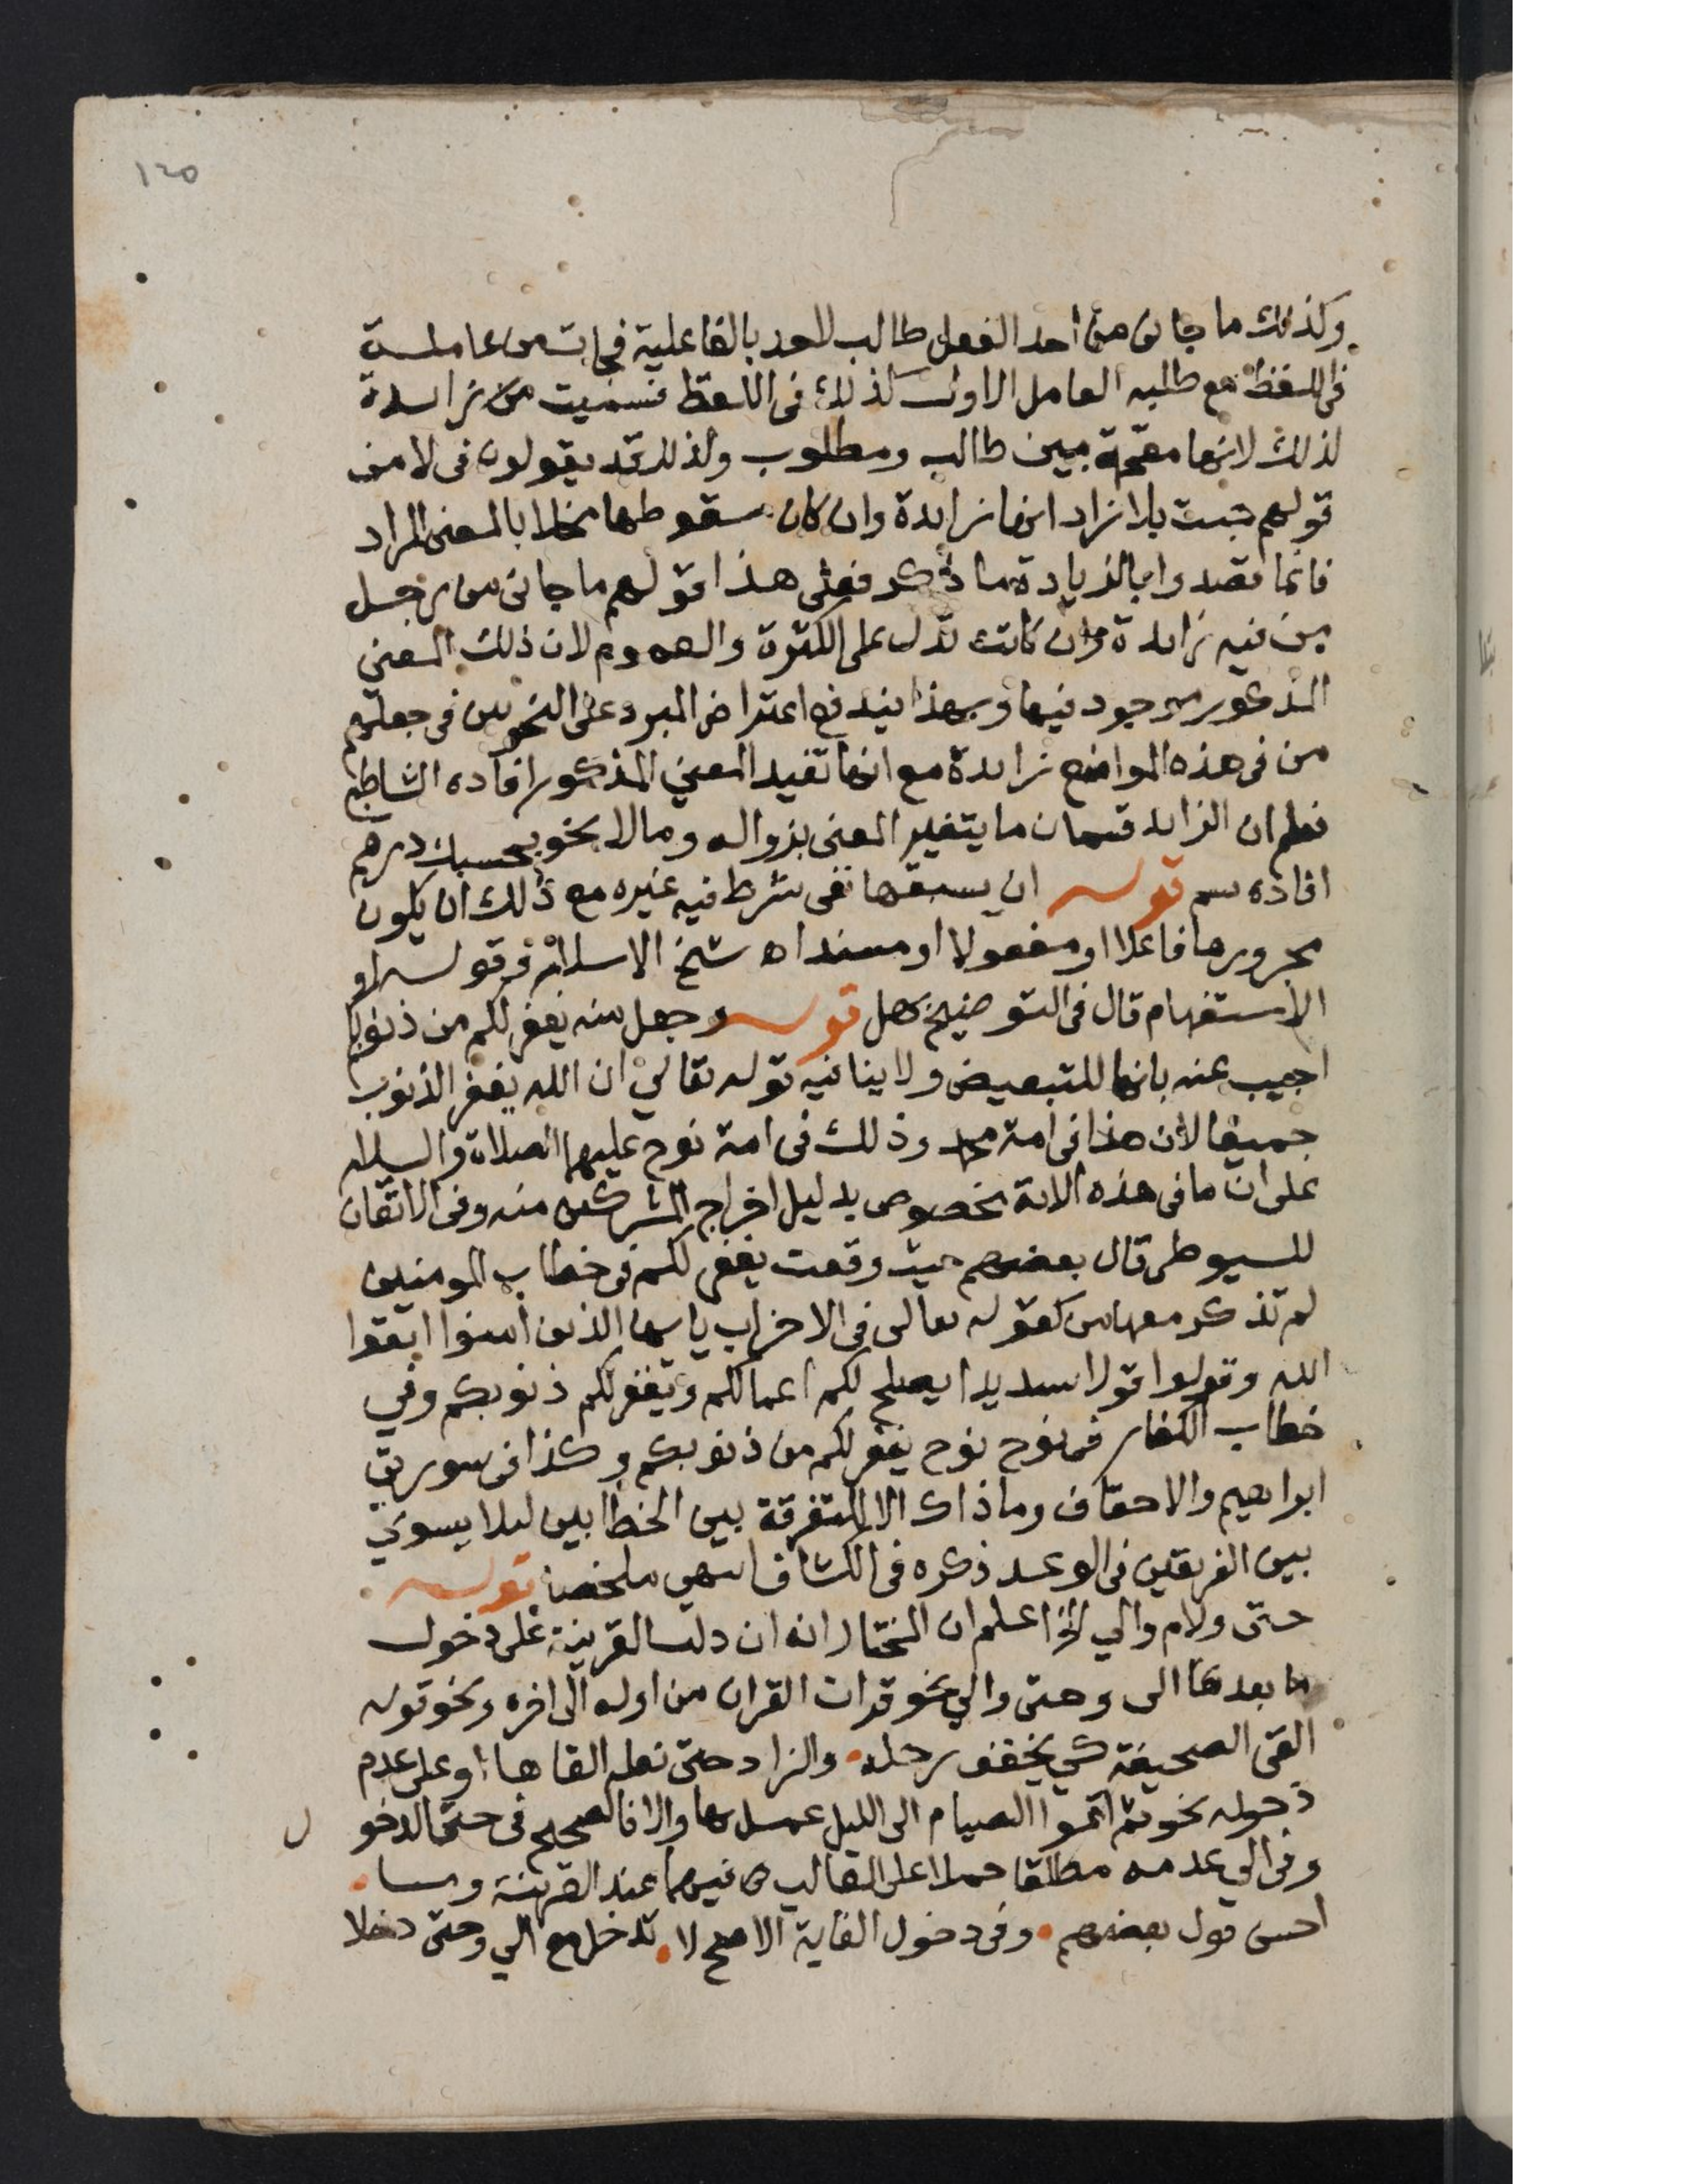 ١٢٥
وكذلك ما جاني من احد الفعل طالب لاحد بالفاعلية فجات من عاملة
في اللفظ مع طلبه العامل الاول كذلك في اللفظ فسميت من زايدة
لذلك لانها مقحمة بين طالب ومطلوب ولذلك قد يقولون في لا من
قولهم جيت بلا زاد انها زايدة وان كان سقوطها مخلا بالمعنى المراد
فانما قصدوا بالزيادة ما ذكر فعلى هذا قولهم ما جاني من رجل
من فيه زايدة وان كانت تدل على الكثرة والعموم لان ذلك المعنى
المذكور موجود فيها وبهذا يندفع اعتراض المبرد على النحويين في جعلهم
من في هذه المواضع زايدة مع انها تفيد المعنى المذكور افاده الشاطبي
فعلم ان الزايد قسمان ما يتغير المعنى بزواله وما لا نحو بحسبك درهم
افاده سم قوله ان يسبقها نفي شرط فيه غيره مع ذلك ان يكون
مجرورها فاعلا او مفعولا او مبتدا اه شيخ الاسلام قوله او
الاستفهام قال في التوضيح بهل قوله وجعل منه يغفر لكم من ذنوبكم
اجيب عنه بانها للتبعيض ولا ينافيه قوله تعالي ان الله يغفر الذنوب
جميعا لان هذا في امة محمد وذلك في امة نوح عليهما الصلاة والسلام
على ان ما في هذه الاية مخصوص بدليل اخراج المشركين منه وفي الاتقان
للسيوطي قال بعضهم حيث وقعت يغفر لكم في خطاب المومنين
لم تذكر معها من كقوله تعالى في الاحزاب يا ايها الذين امنوا اتقوا
الله وقولوا قولا سديدا يصلح لكم اعمالكم ويغفر لكم ذنوبكم وفي
خطاب الكفار في نوح نوح يغفر لكم من ذنوبكم وكذا في سورتي
ابراهيم والاحقاف وما ذاك الا للتفرقة بين الخطابين ليلا يسوي
بين الفريقين في الوعد ذكره في الكشاف انتهى ملخصا قوله
حتى ولام والي الخ اعلم ان المختار انه ان دلت القرينة على دخول
ما بعدها الى وحتى والي نحو قرات القران من اوله الى اخره ونحو قوله
القى الصحيفة كي يخفف رحله والزاد حتى نعله القاها او على عدم
دخوله نحو ثم اتموا الصيام الى الليل عمل بها والا فالصحيح في حتى الدخو
ل
وفي الي عدمه مطلقا حملا على الغالب فيهما عند القرينة وما
احسن قول بعضهم وفي دخول الغاية الاصح لا تدخل مع الي وحتى دخلا